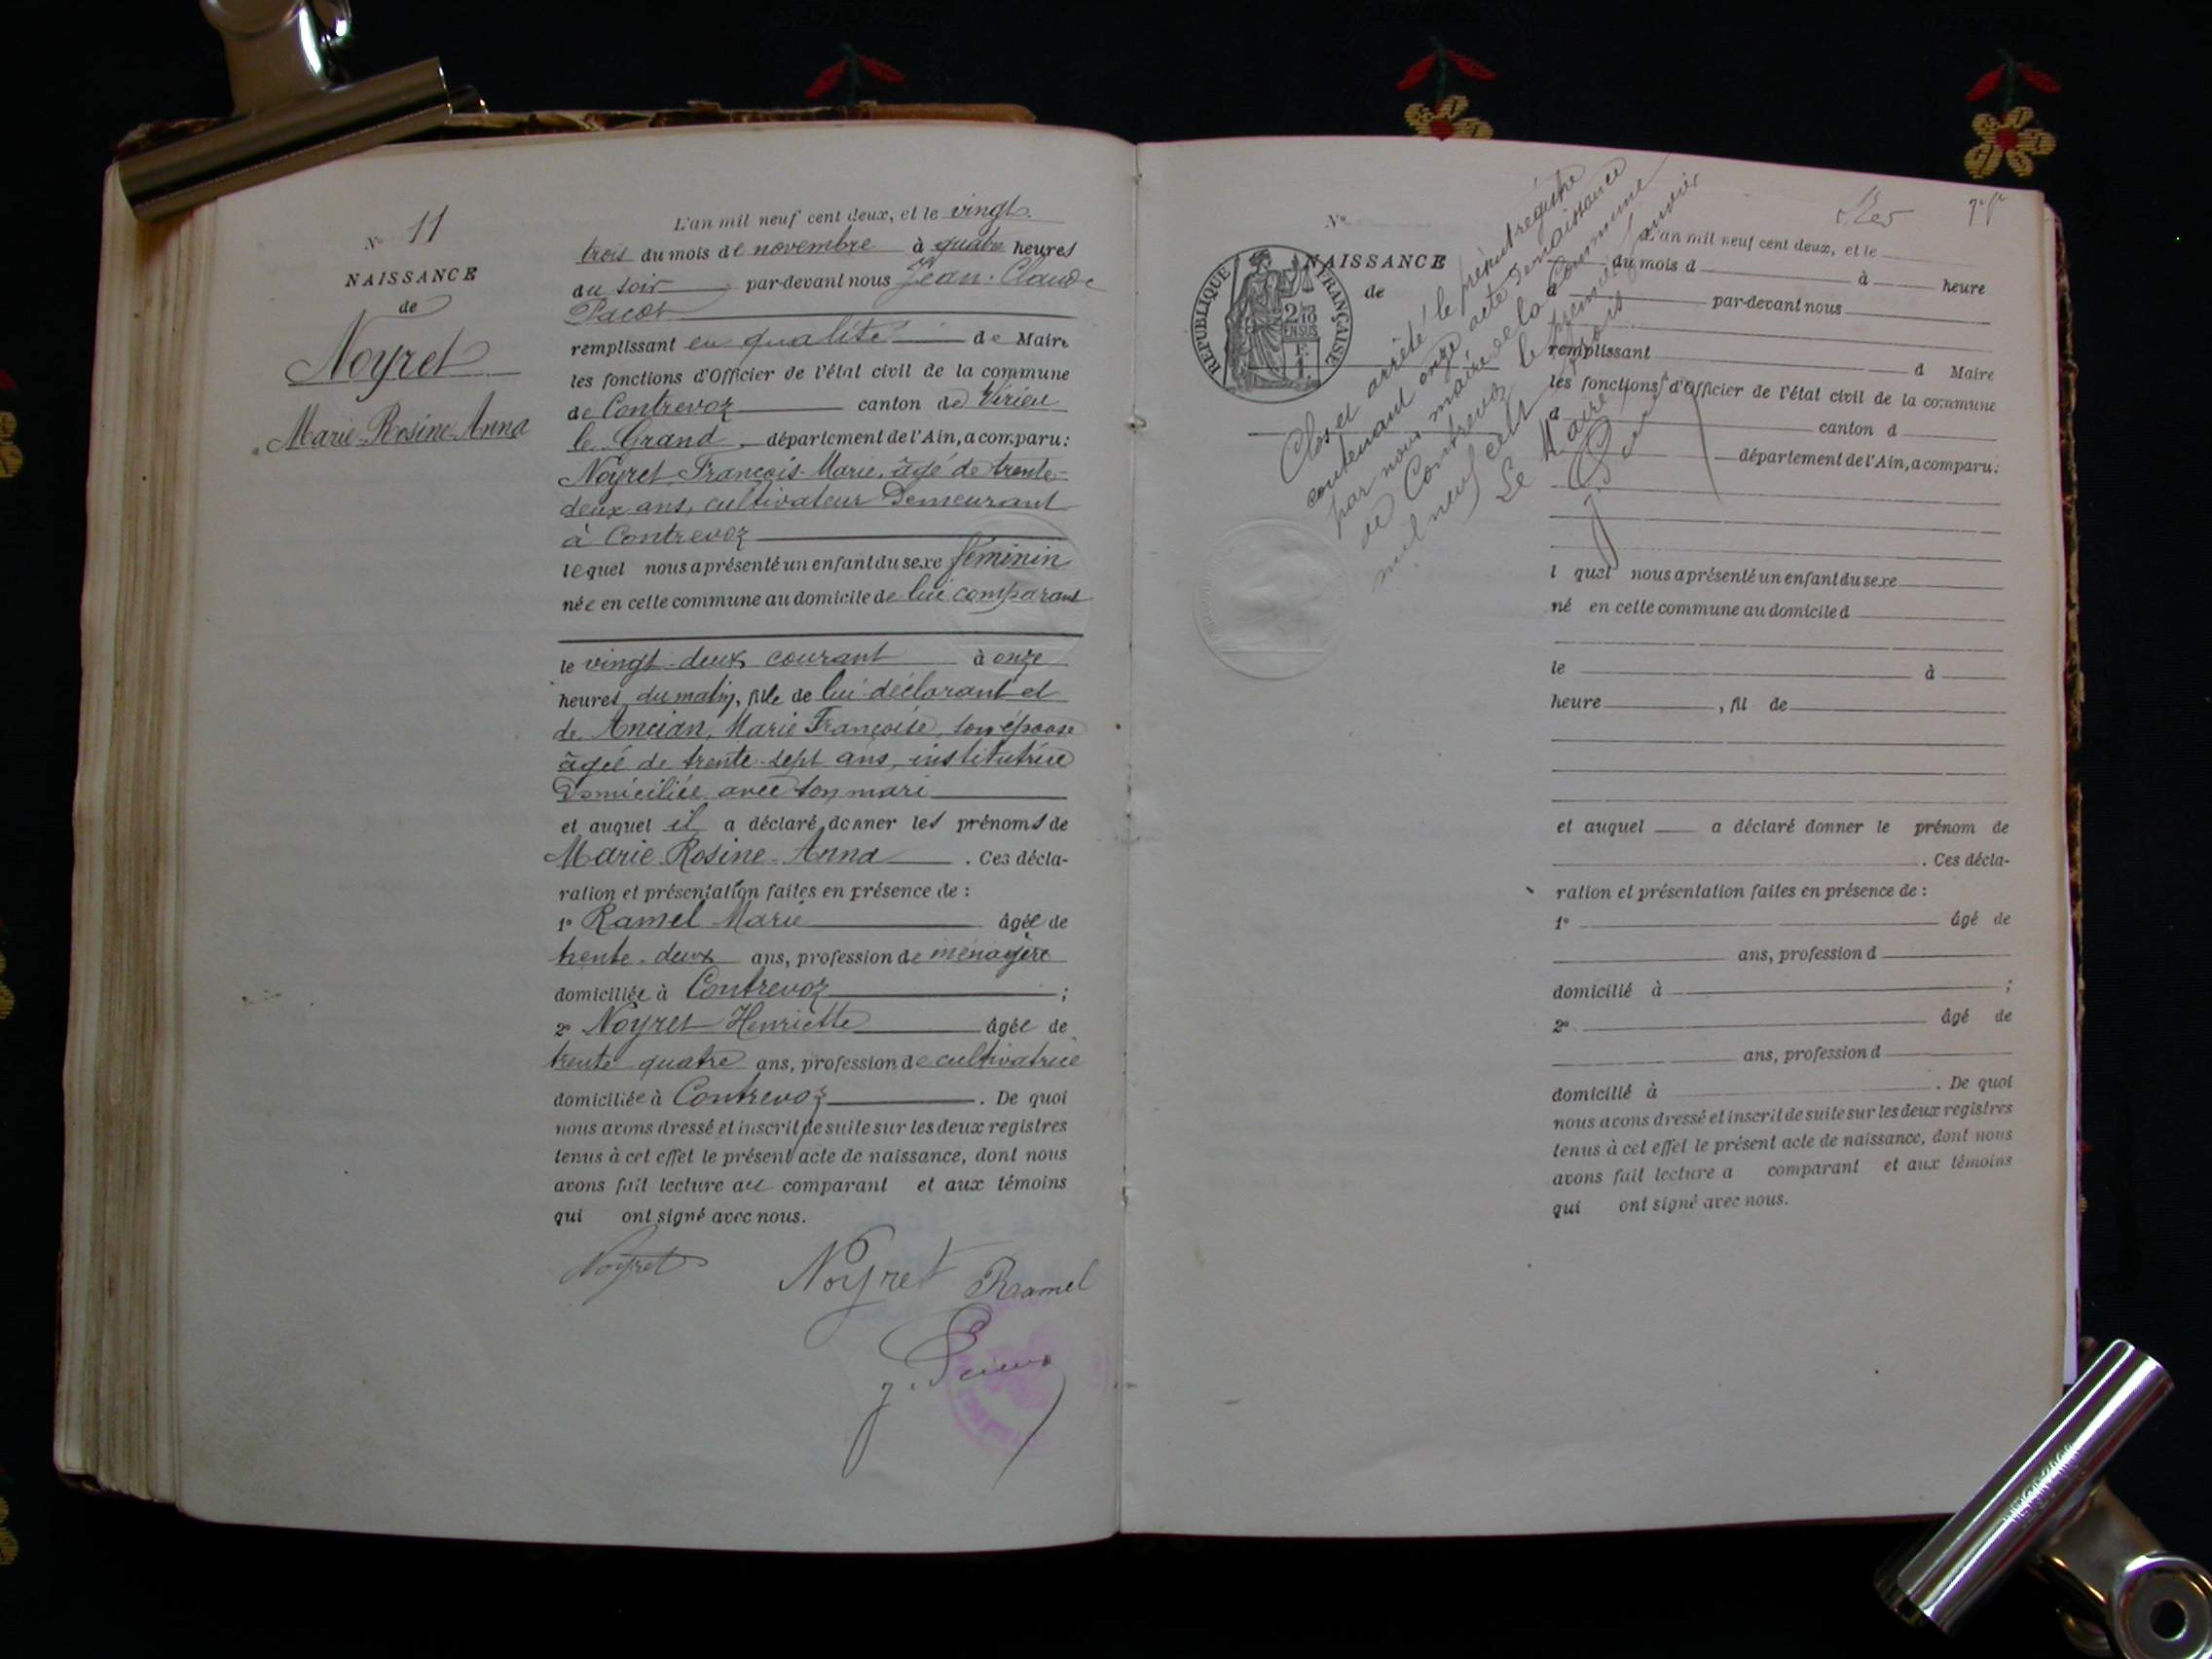 N° 11
NAISSANCE
de
Noyret
Marie-Rosine-Anna
L'an mil neuf cent deux, et le vingt-
trois du mois de novembre à quatre heures
du soir par-devant nous Jean-Claude
Pacot
remplissant en qualité de Maire
les fonctions d'Officier de l'état civil de la commune
de Contrevoz canton de Virieu
le Grand département de l'Ain, a comparu:
Noyret François-Marie, âgé de trente-
deux ans, cultivateur demeurant
à Contrevoz
lequel nous a présenté un enfant du sexe féminin
née en cette commune au domicile de lui comparant
le vingt-deux courant à onze
heures du matin, fille de lui déclarant et
de Ancian, Marie Françoise, son épouse
âgée de trente-sept ans, institutrice
domiciliée avec son mari
et auquel il a déclaré donner les prénoms de
Marie-Rosine-Anna . Ces décla-
ration et présentation faites en présence de :
1° Ramel Marie âgée de
trente-deux ans, profession de ménagère
domiciliée à Contrevoz ;
2° Noyret Henriette âgée de
trente quatre ans, profession de cultivatrice
domiciliée à Contrevoz . De quoi
nous avons dressé et inscrit de suite sur les deux registres
tenus à cet effet le présent acte de naissance, dont nous
avons fait lecture au comparant et aux témoins
qui ont signé avec nous.
Noyret Noyret Ramel
N°
NAISSANCE
de
RÉPUBLIQUE FRANÇAISE
2/10 EN SUS
Clos et arrêté le présent registre
contenant onze actes de naissance
par nous maire de la Commune
de Contrevoz le premier janvier
mil neuf cent trois
Le Maire
L'an mil neuf cent deux, et le
du mois d à heure
d par-devant nous
remplissant d Maire
les fonctions d'Officier de l'état civil de la commune
d canton d
département de l'Ain, a comparu:
l quel nous a présenté un enfant du sexe
né en cette commune au domicile d
le à
heure , fil de
et auquel a déclaré donner le prénom de
. Ces décla-
ration et présentation faites en présence de :
1° âgé de
ans, profession d
domicilié à ;
2° âgé de
ans, profession d
domicilié à . De quoi
nous avons dressé et inscrit de suite sur les deux registres
tenus à cet effet le présent acte de naissance, dont nous
avons fait lecture a comparant et aux témoins
qui ont signé avec nous.